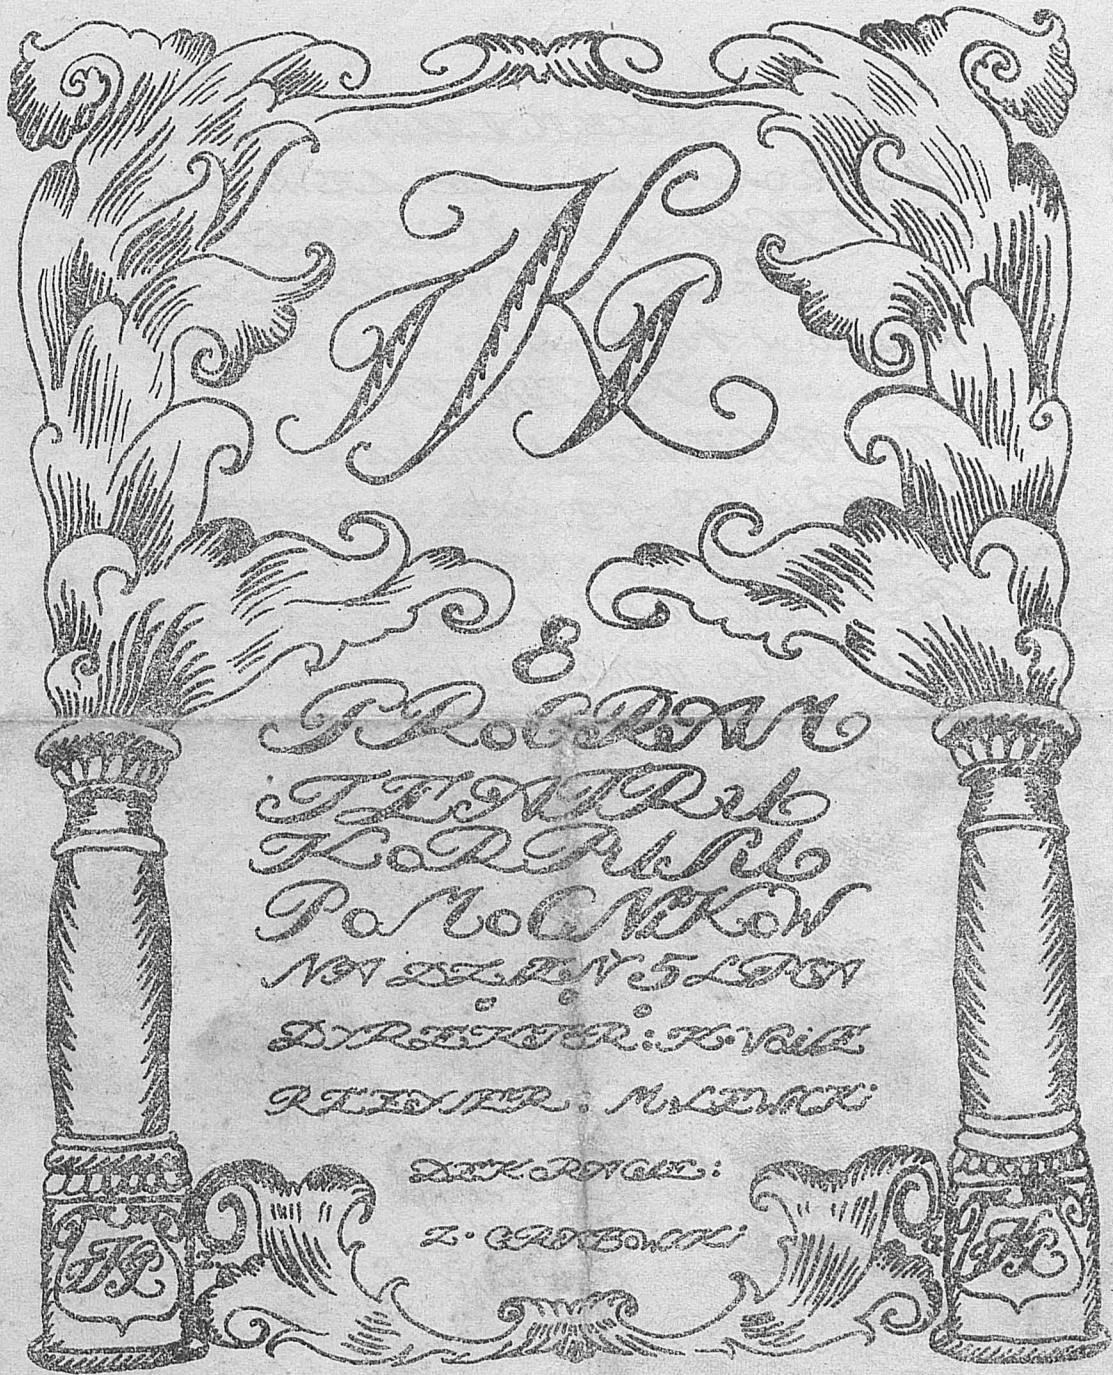 TKP
8
PROGRAM
TEATRU
KORPUSU
POMOCNIKÓW
NA DZIEŃ 5 LIPCA
DYREKTOR: K. VOIT
REŻYSER: M. LEWICKI
DEKORACJE:
TKP
TKP